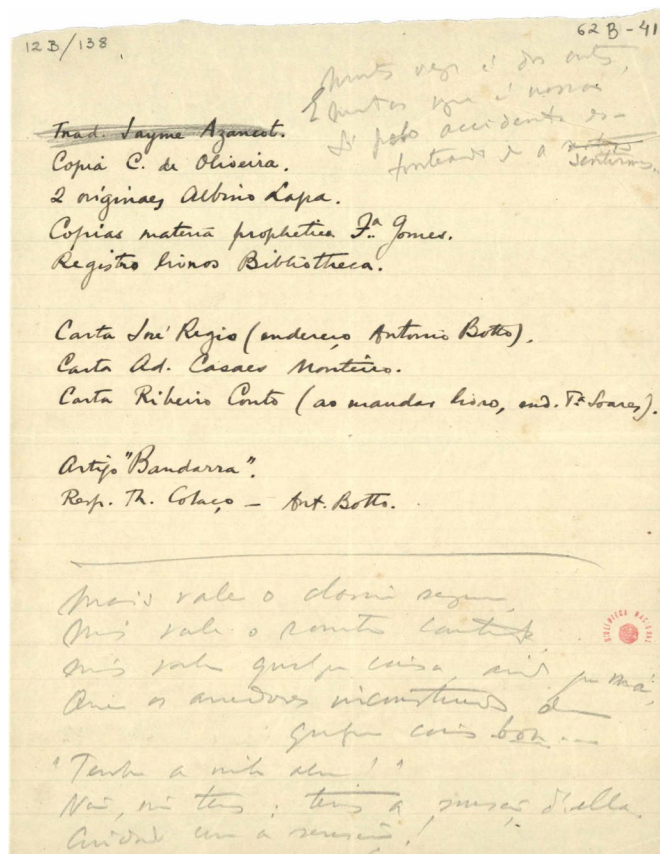 12 B/138
62 B-41
muitas vezes é dos outros,
E muitas vezes é nossa
Só pelo accidente de
a sentirmos.
Trad. Jayme Azancot.
Copia C. de Oliveira.
2 originaes Albino Lapa.
Copias materia prophetica F.ª Gomes.
Registro livros Bibliotheca.
Carta José Regio (endereço Antonio Botto).
Carta Ad. Casaes Monteiro.
Carta Ribeiro Couto (ao mandar livro, end. Tª Soares).
Artigo "Bandarra".
Resp. Th. Colaço — Ant. Botto.
Mais vale o dormir
Mais vale o
Mais vale qualquer coisa, ainda que má,
Que os arredores inconstruidos de
qualquer coisa boa...
"Tenho a minha alma!"
Não, não tens: tens a sensação d'ella.
Cuidado com a sensação!
BIBLIOTECA NACIONAL